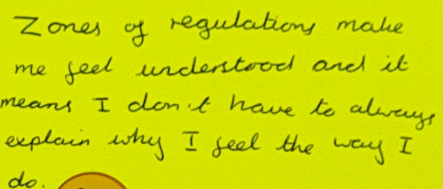 Zones of regulations make
me feel understood and it
means I don't have to always
explain why I feel the way I
do.